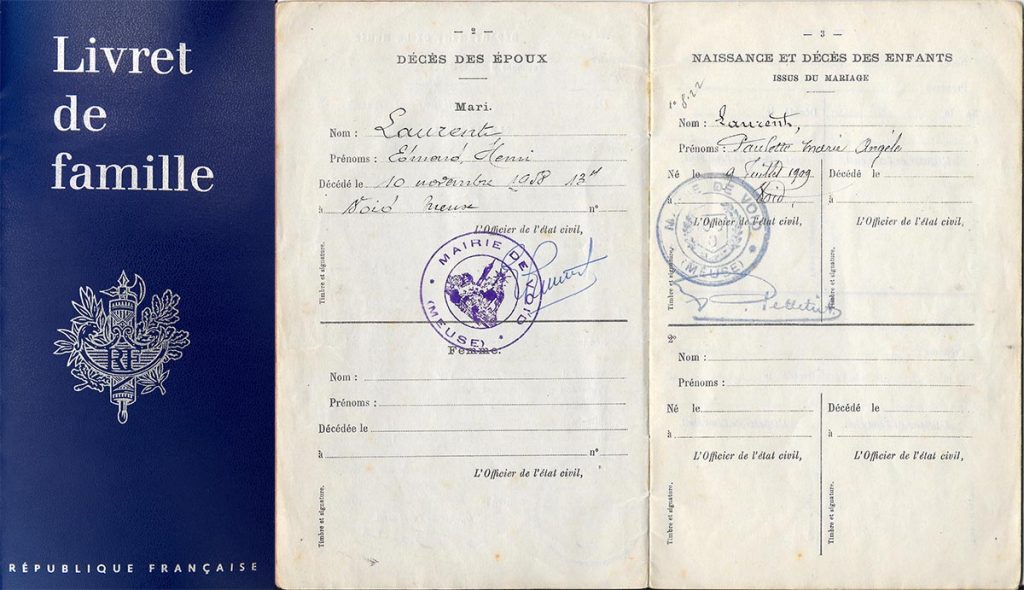 Livret
de
famille
RF
RÉPUBLIQUE FRANÇAISE
— 2 —
DÉCÈS DES ÉPOUX
Mari.
Nom : Laurent
Prénoms : Edmond, Henri
Décédé le 10 novembre 1958 13h
à Void Meuse n°
L'Officier de l'état civil,
Timbre et signature.
MAIRIE DE VOID
(MEUSE)
Femme.
Nom :
Prénoms :
Décédée le
à n°
L'Officier de l'état civil,
Timbre et signature.
— 3 —
NAISSANCE ET DÉCÈS DES ENFANTS
ISSUS DU MARIAGE
Nom : Laurent,
Prénoms : Paulette Marie Angèle
Né le 9 Juillet 1909 Décédé le
à Void, à
L'Officier de l'état civil, L'Officier de l'état civil,
Timbre et signature. Timbre et signature.
DE VOID
(MEUSE)
2°
Nom :
Prénoms :
Né le Décédé le
à à
L'Officier de l'état civil, L'Officier de l'état civil,
Timbre et signature. Timbre et signature.